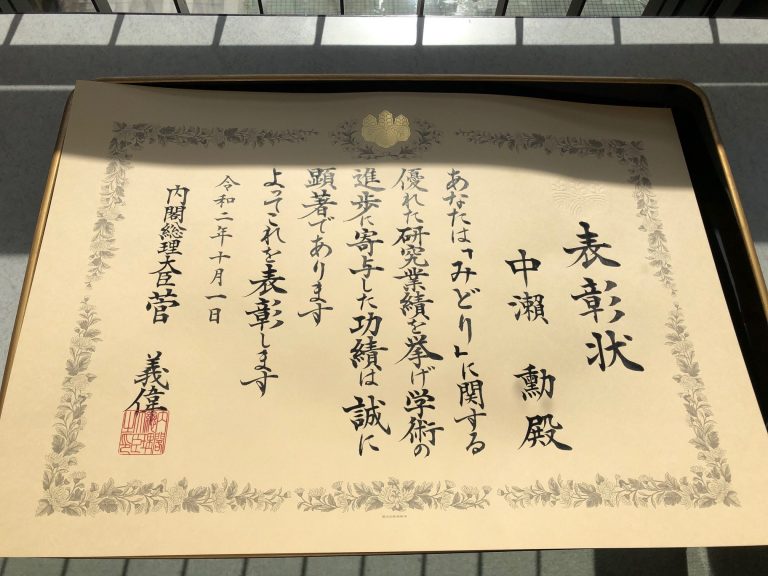 表彰状
中瀬 勲殿
あなたは「みどり」に関する
優れた研究業績を挙げ学術の
進歩に寄与した功績は誠に
顕著であります
よってこれを表彰します
令和二年十月一日
内閣総理大臣 菅 義偉